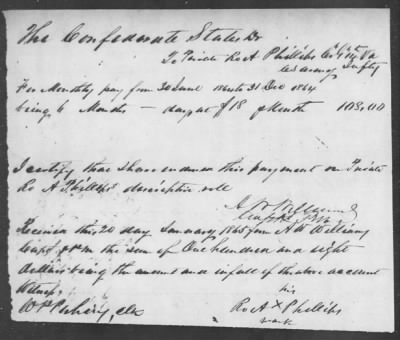 The Confederate States Dr
To Private Ro A Phillips Co G 19 Va
For Monthly pay from 30 June 1864 to 31 Dec 1864
being 6 Months — days at $18 pr Month 108.00
I certify that I have endorsed this payment on Private
Ro A Phillips descriptive roll
Received this 20 day January 1865 from A W Williams
Capt & QM the sum of One hundred and eight
dollars being the amount and in full of the above account
Witness
his
Ro A X Phillips
mark